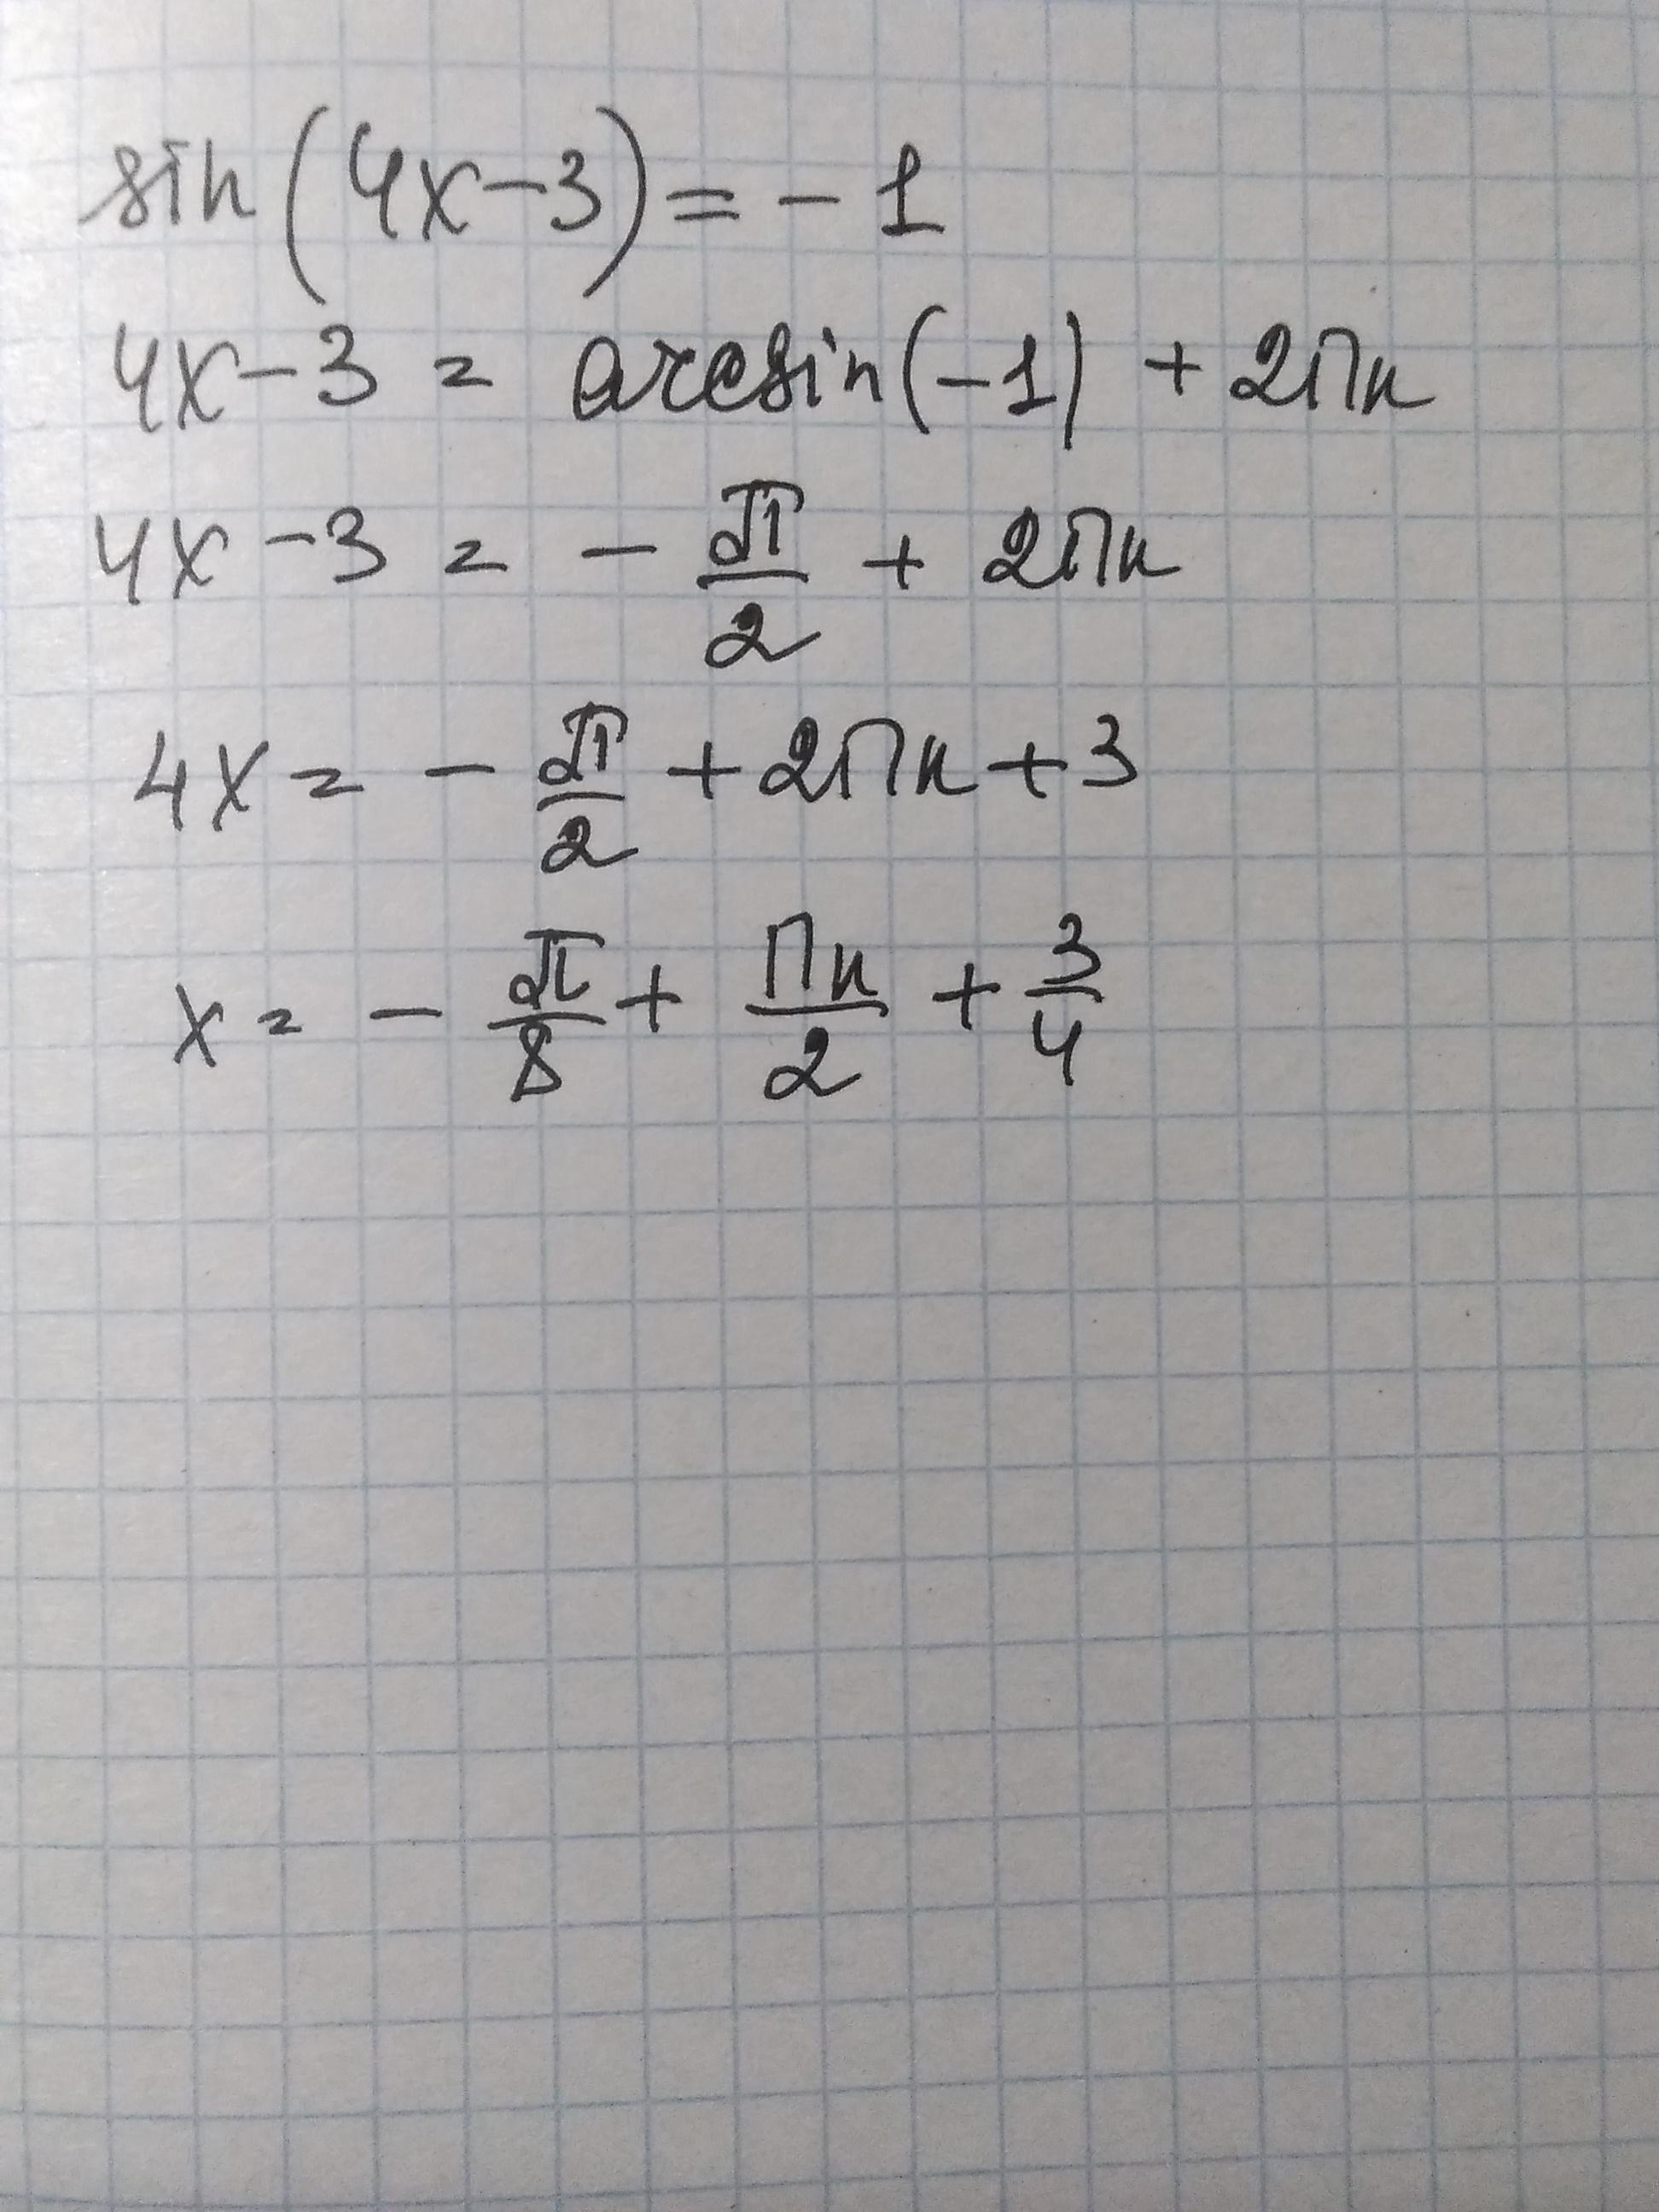 sin(4x-3)=-1
4x-3=arcsin(-1)+2πn
4x-3=-π/2+2πn
4x=-π/2+2πn+3
x=-π/8+πn/2+3/4